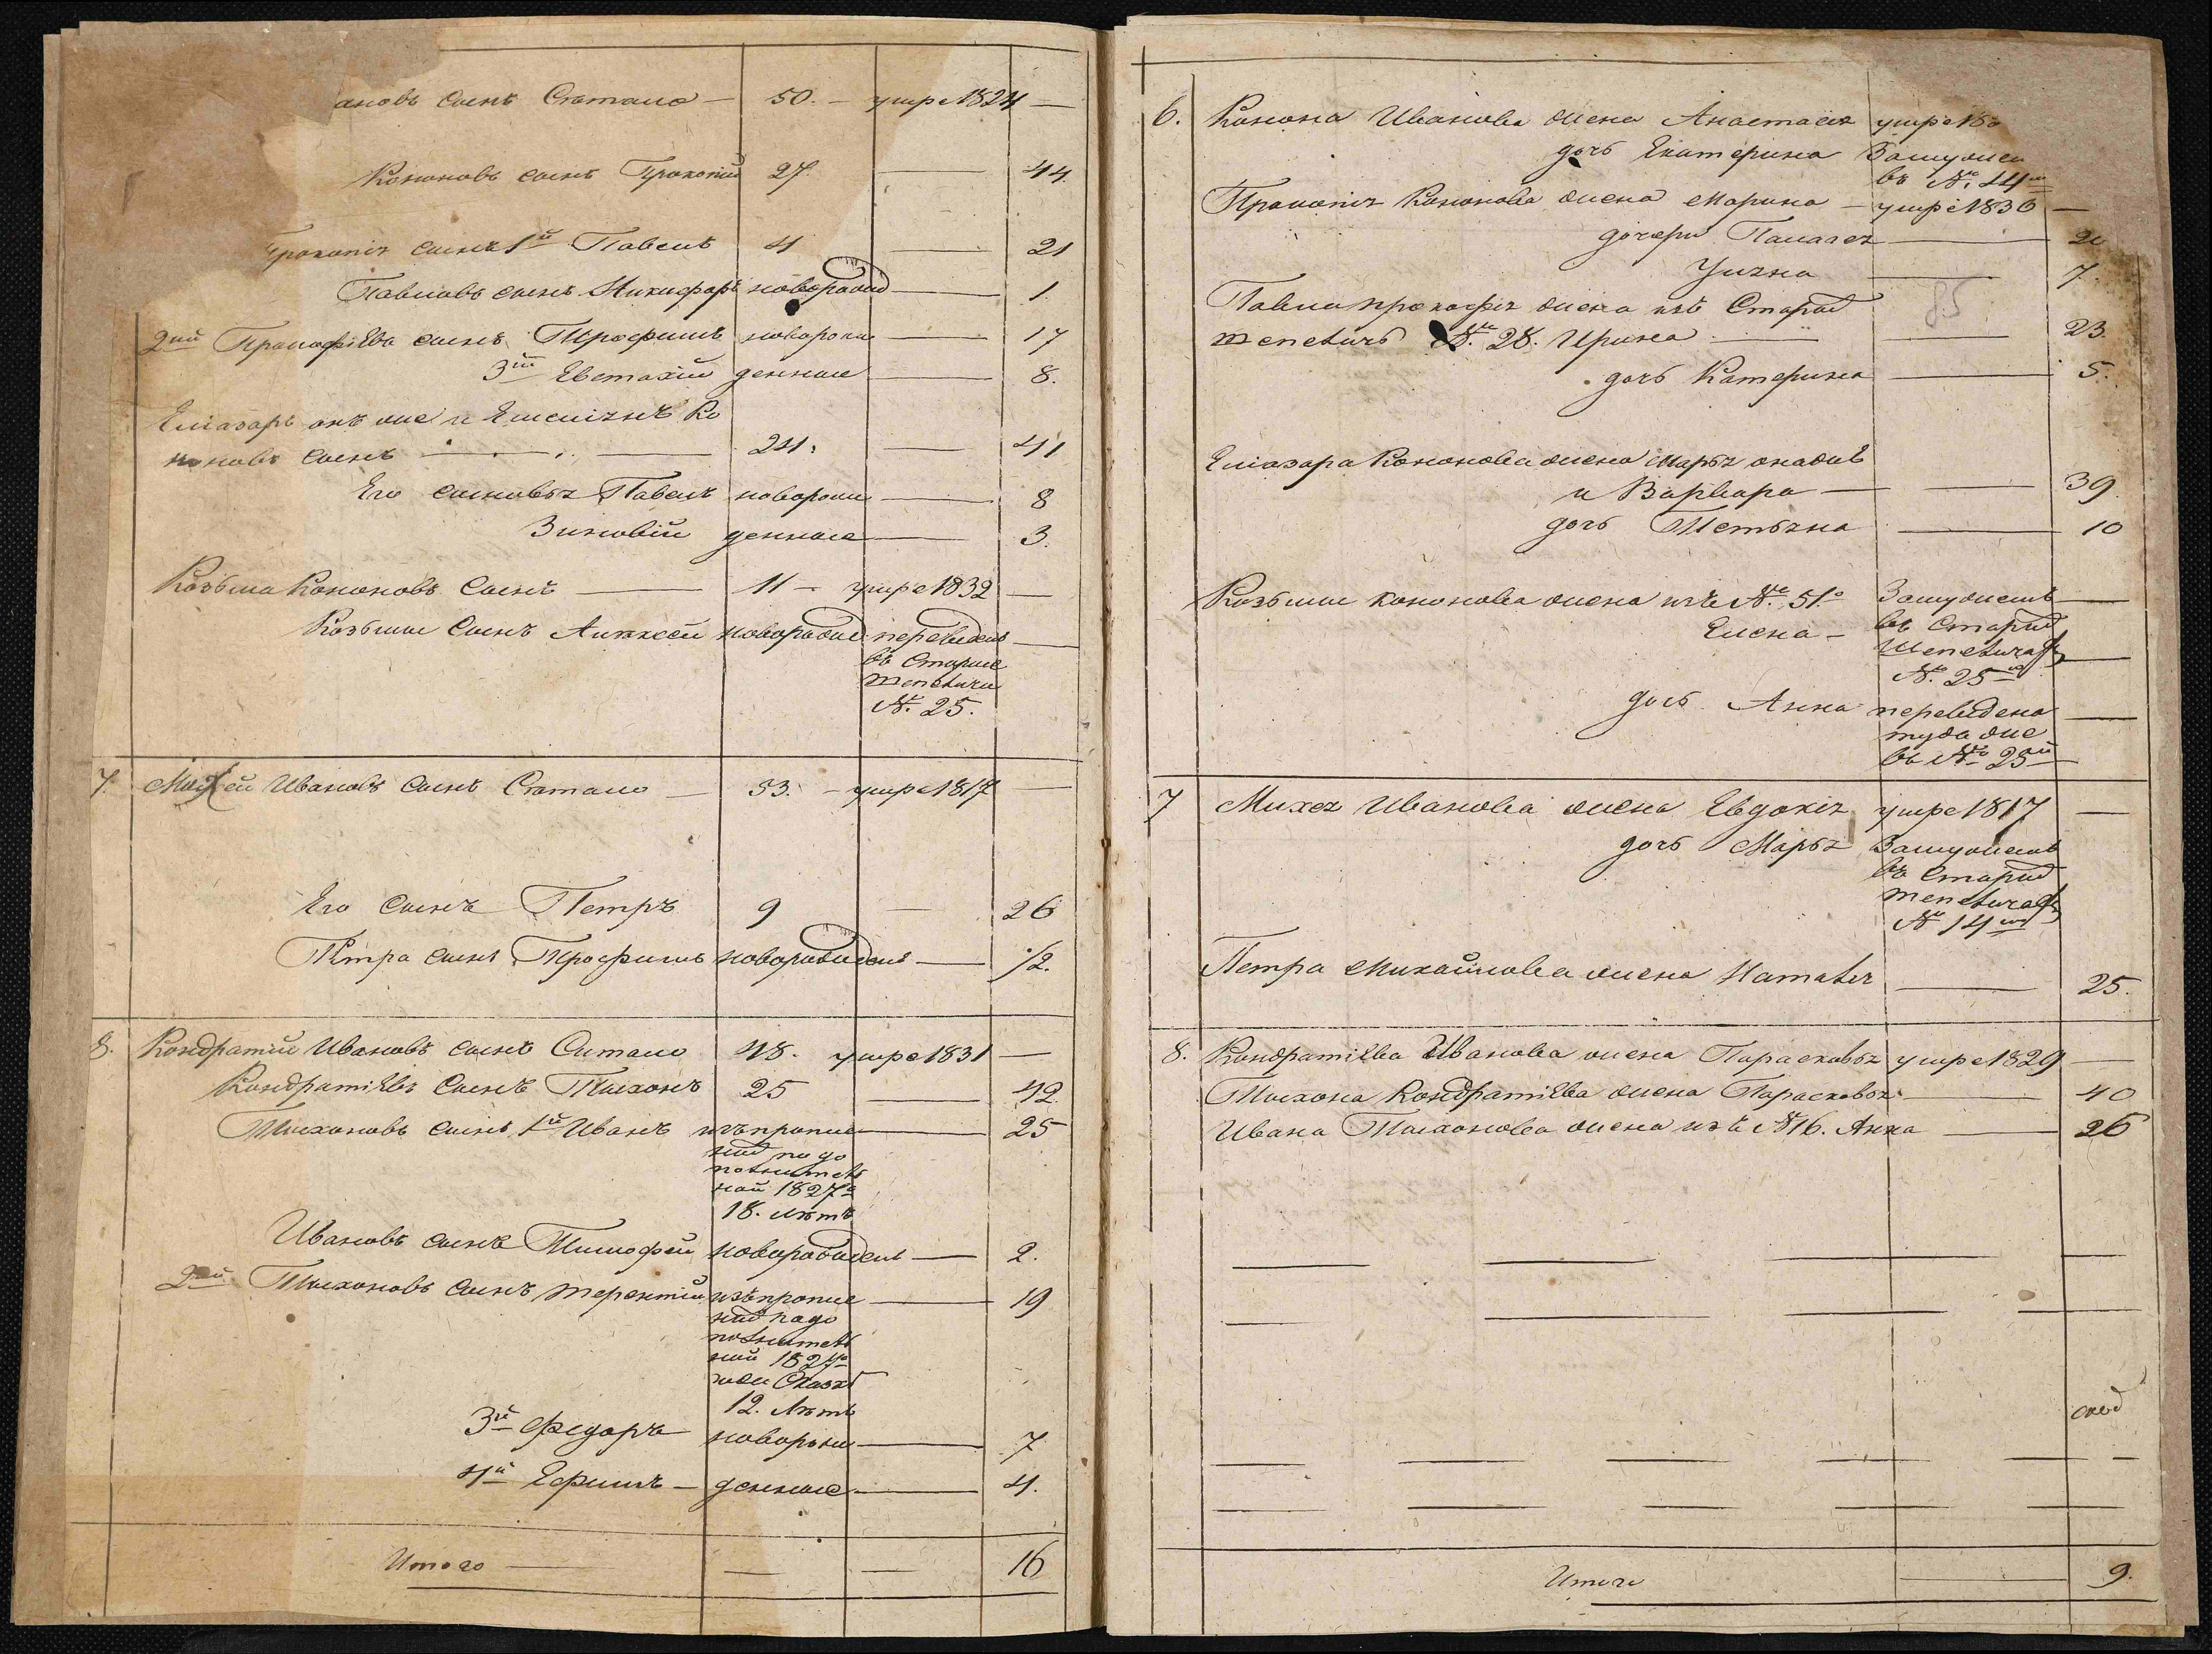 ановъ сынъ Ситало — 50. — умре 1824 —
Кононовъ сынъ Прокопій 27. — 44.
Прокопія сынъ 1й Павелъ 4 — 21
Павловъ сынъ Никифоръ новорожд — 1.
2ий Прокофіева сынъ Трофимъ новорож — 17
3ій Евстахій денные — 8.
Еліазаръ онъ же и Емеліянъ Ко
ноновъ сынъ — 24. — 41
Его сыновья Павелъ новорож — 8
Зиновій денные — 3.
Козьма Кононовъ сынъ — 11 — умре 1832 —
Козьмы сынъ Алексей новорожд переведенъ —
въ Старые
Шепеличи
№. 25.
7. Михей Ивановъ сынъ Ситало — 53. — умре 1817 —
Его сынъ Петръ 9 — 26
Петра сынъ Трофимъ новорожденъ — 1/2.
8. Кондратій Ивановъ сынъ Ситало 48. умре 1831 —
Кондратіевъ сынъ Тихонъ 25 — 42.
Тихоновъ сынъ 1й Иванъ изъ пропис — 25
ной по до
полнитель
ной 1827го
18. летъ
Ивановъ сынъ Тимофей новорожденъ — 2.
2ой Тихоновъ сынъ Терентій изъ пропис — 19
ной по до
полнитель
ной 1827го
года Сказке
12. летъ
3й Федоръ новорож — 7
4й Ефимъ — денные — 4.
Итого — — — 16
6. Конона Иванова жена Анастасія умре 18
дочь Екатерина Замужем
въ №. 44м
Прокопія Кононова жена Марина — умре 1836 —
дочери Палагея — 20
Уляна — 7.
Павла Прокофія жена изъ Старыхъ
Шепеличъ №. 28. Ирина — — 23.
дочь Катерина — 5.
Еліазара Кононова жена Марья онаже
и Варвара — — 39.
дочь Тетьяна — 10
Козьмы Кононова жена изъ №. 51го Замужемъ —
Елена — въ Старыхъ
Шепеличахъ —
№. 25м
дочь Анна переведена —
туда же
въ № 25й
7 Михея Иванова жена Евдокія умре 1817 —
дочь Марья Замужемъ
въ Старыхъ
Шепеличахъ
№ 14м
Петра Михайлова жена Наталія — 25.
8. Кондратіева Иванова жена Парасковья умре 1829 —
Тихона Кондратіева жена Парасковья — 40
Ивана Тихонова жена изъ №16. Анна — 26
Итого — 9.